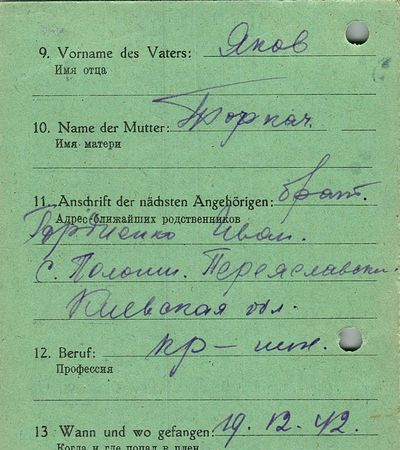 9. Vorname des Vaters: Яков
Имя отца
10. Name der Mutter: Торкач.
Имя матери
11. Anschrift der nächsten Angehörigen: брат.
Адрес ближайших родственников
Иван.
с. Переяславски.
Киевская обл.
12. Beruf: кр-ин.
Профессия
13 Wann und wo gefangen: 19.12.42.
Когда и где попал в плен